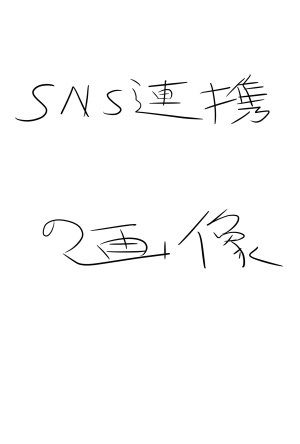 SNS連携
の画像